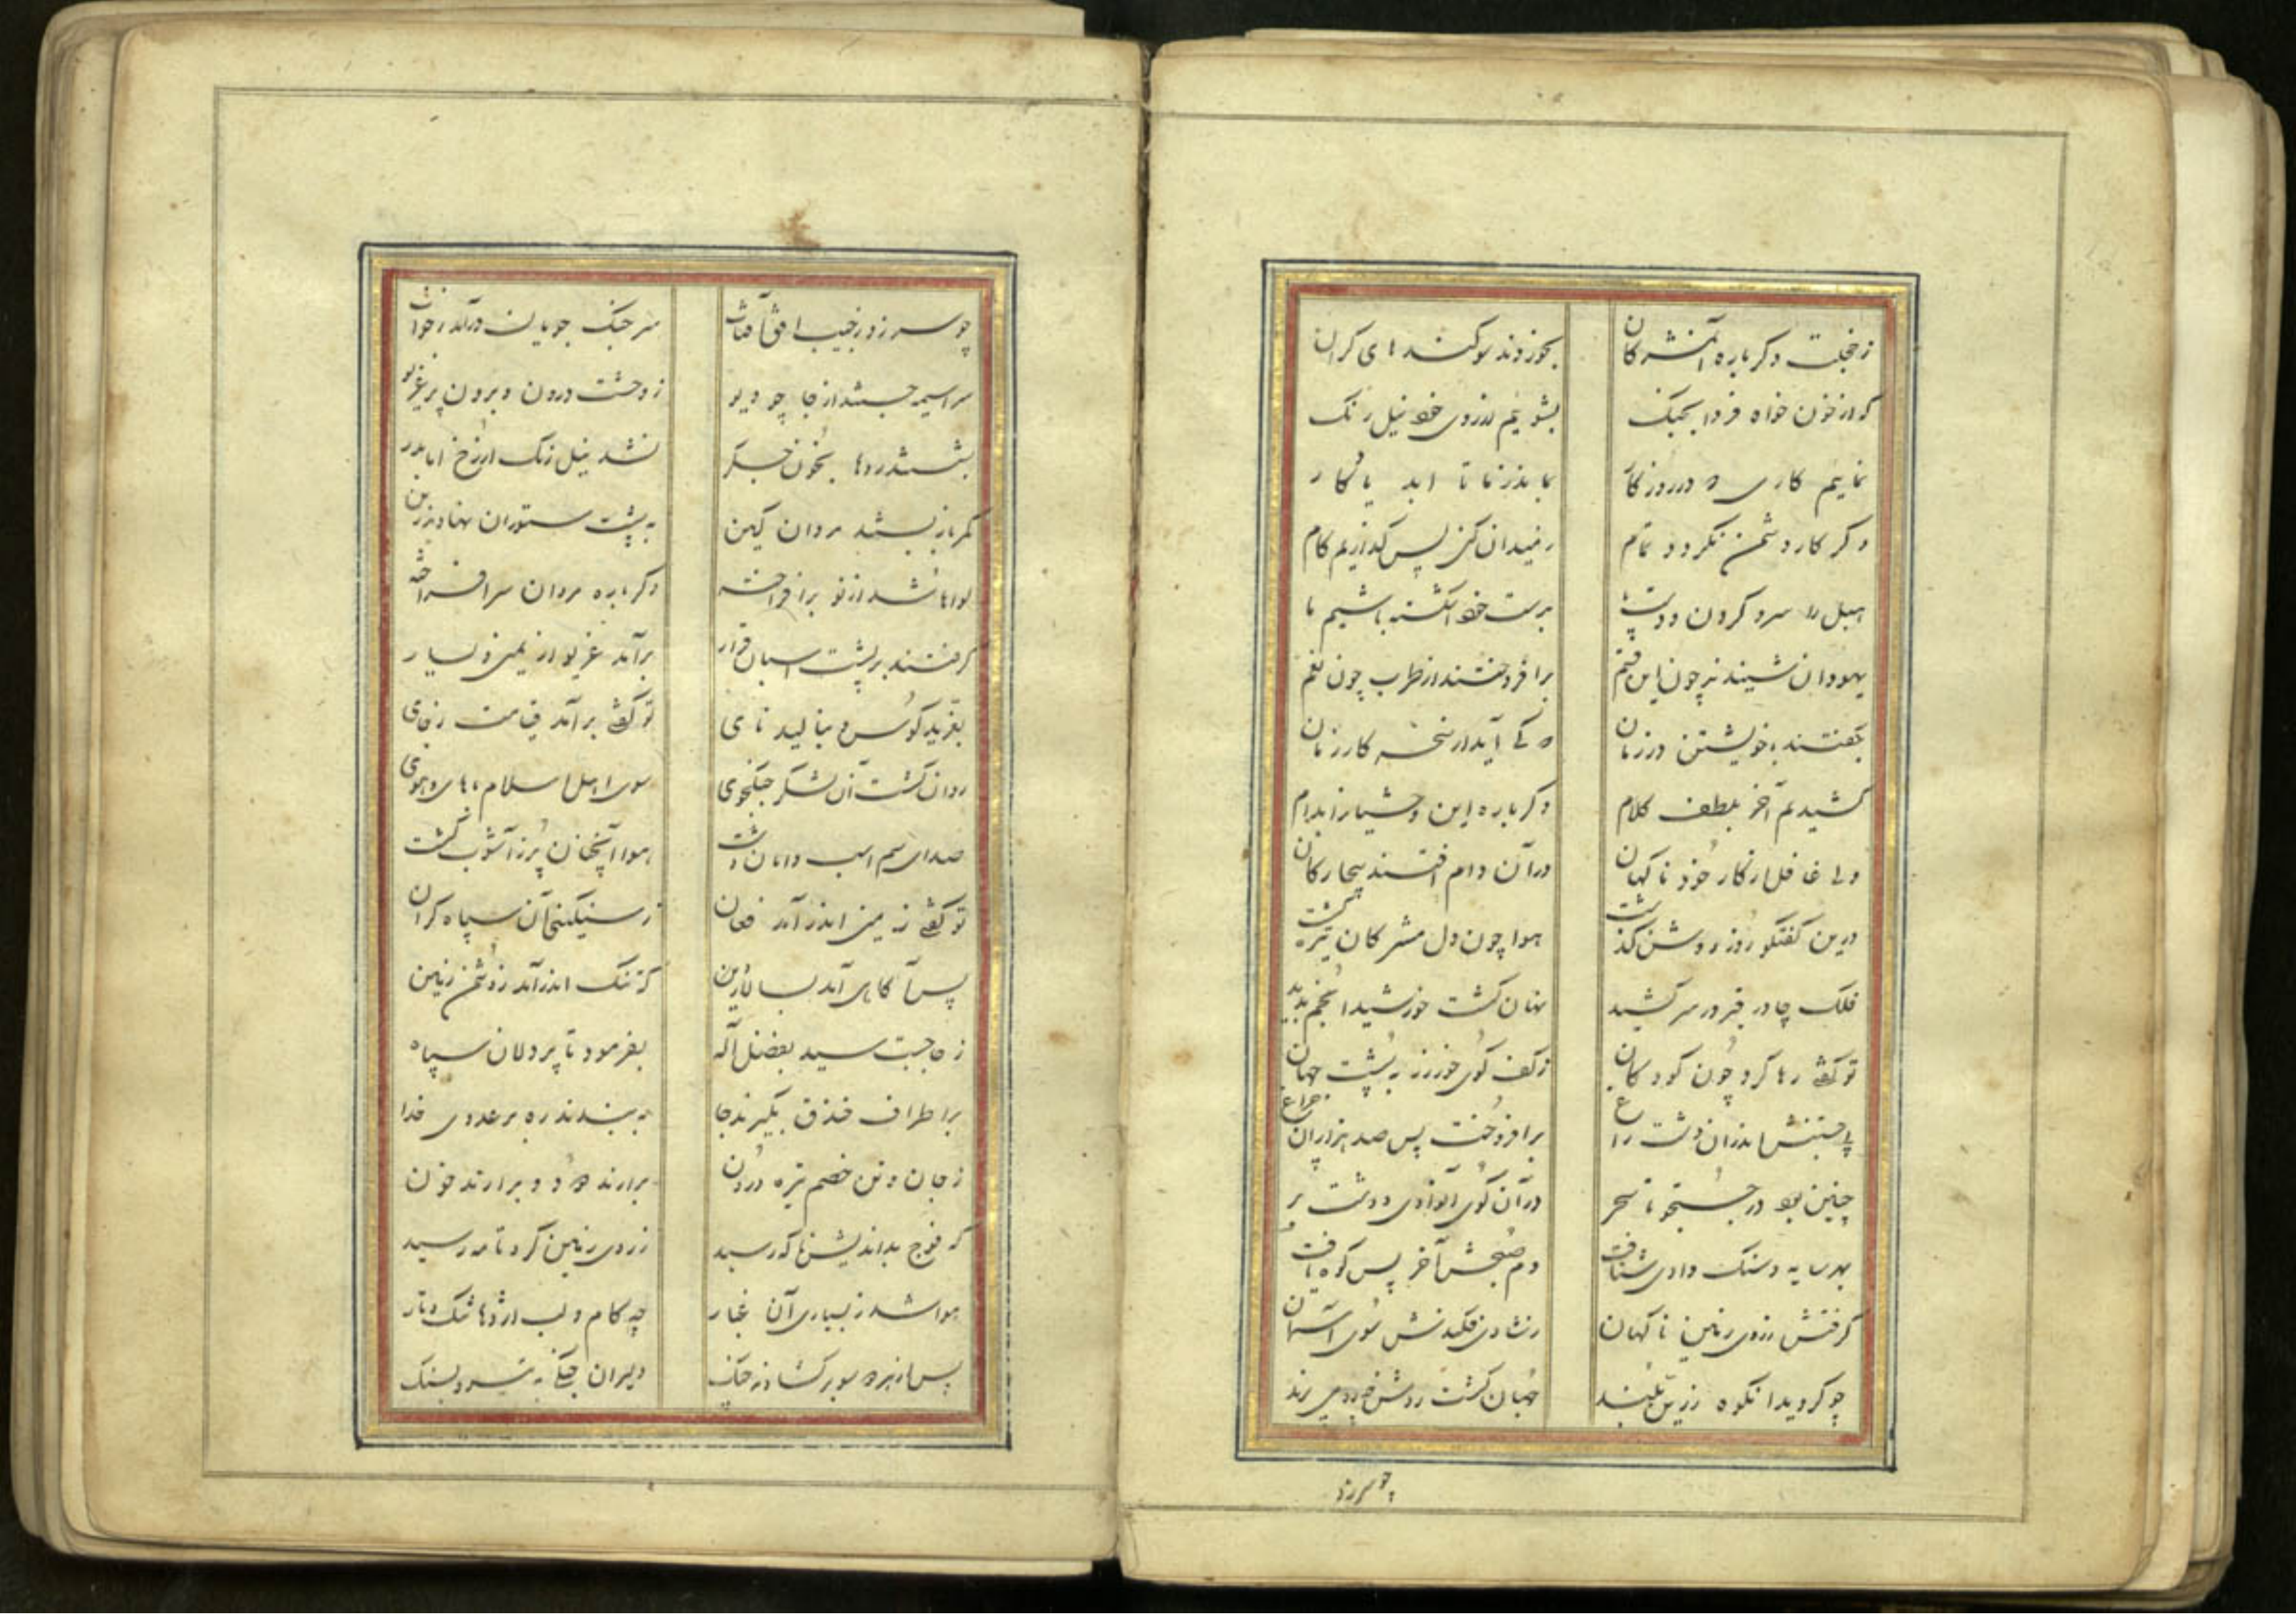 ز خجلت دکرباره آن مشرکان بخوردند سوکندهای کران
که از خون خواه فردا بجنک بشوییم از روی خود نیل رنک
نماییم کاری که در روزکار بماند ز ما تا ابد یادکار
وکر کار دشمن نکردد تمام ز میدان کین پس نکذاریم کام
هبل را سر و کردن و دست و پا بدست خود اشکسته باشیم ما
یهودان شنیدند چون این قسم برافروختند از طرب چون بقم
بگفتند با خویشتن در زمان که کی آید از نخسه کار زمان
کشیدیم آخر بلطف کلام دکرباره این وحشیانرا بدام
ولی غافل از کار خود ناکهان در آن دام افتند بیچارکان
درین کفتکو روز روشن کذشت هوا چون دل مشرکان تیره کشت
فلک چادر قیر در سر کشید نهان کشت خورشید انجم پدید
تو کفتی رها کرد چون کودکان ز کف کوی خور زر به پشت جهان
پی جستنش اندران دشت و راغ برافروخت پس صد هزاران چراغ
چنین بود در جستجو تا سحر در آن کوی وادی و دشت و بر
بهر سایه و سنک وادی شتافت دم صبحش آخر پس کوه یافت
کرفتش ز روی زمین ناکهان ز شادی فکندش سوی آسمان
چو کردید آنکوه زرین بلند جهان کشت روشن
چو سر زد
چو سر زد ز جیب افق آفتاب سر جنک جویان درآمد ز خواب
سراسیمه جستند از جا چو دیو ز وحشت درون و برون پر غریو
بشستند روها بخون جکر نشد نیل زنک از رخ
کمر باز بستند مردان کین به پشت ستوران نهادند زین
لواها شد از نو برافراخته دکرباره مردان سرافراخته
کرفتند بر پشت اسبان قرار برآمد غریو از یمین و یسار
بغرید کوس و بنالید نای تو کفتی برآمد قیامت ز جای
روان کشت آن لشکر جنکجوی سوی اهل اسلام با های و هوی
صدای سم اسب و دامان دشت هوا آنچنان پر ز آشوب کشت
تو کفتی زمین اندر آمد فغان ز سنکینی آن سپاه کران
پس آکاهی آمد بسالار دین که تنک اندر آمد ز دشمن زمین
ز جا جست سید بفضل اله بفرمود تا پر دلان سپاه
بر اطراف خندق بکیرند جا به بندند ره بر عدوی خدا
ز جان و تن خصم تیره درون برآرند دود و برآرند خون
که فوج بداندیش ناکه رسید ز روی زمین کرد تا مه رسید
هوا شد ز بسیاری آن غبار چه کام و لب اژدها تنک و تار
پس از هر دو سو برکشادند جنک دلیران جنکی به تیر و بسنک